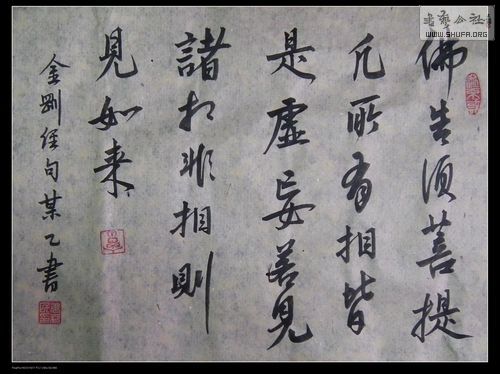 佛告須菩提
凡所有相皆
是虛妄若見
諸相非相則
見如来
金剛經句某乙書
書藝公社
WWW.SHUFA.ORG